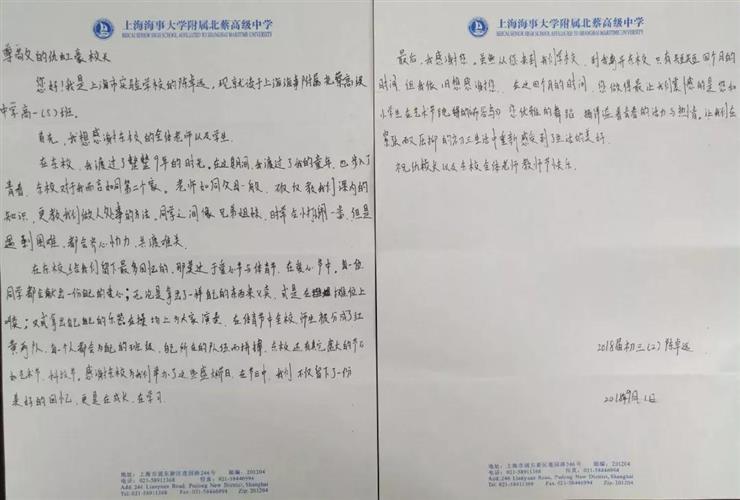 上海海事大学附属北蔡高级中学
BEICAI SENIOR HIGH SCHOOL AFFILIATED TO SHANGHAI MARITIME UNIVERSITY
尊敬的 校长
您好！我是上海市实验学校的陈卓远，现就读于上海海事附属北蔡高级
中学高一（5）班。
首先，我想感谢东校的全体老师以及学生
在东校，我渡过了整整9年的时光。在这期间，我渡过了我的童年，也步入了
青春，东校对于我而言如同第二个家。老师如同父母一般，不仅仅教我们课内的
知识，更教我们做人处事的方法。同学之间像兄弟姐妹，时常会小打小闹一番，但是
遇到困难，都会齐心协力，共渡难关。
在东校给我们留下最多回忆的，那莫过于爱心节与体育节。在爱心节中，每一位
同学都会献出一份自己的爱心；无论是拿出了一样自己的东西来义卖，或是在摊位上
；又或拿出自己的乐器在操场上为大家演奏。在体育节中全校师生被分成了红
黄两队，每一个人都会为自己的班级，自己所在的队伍而拼搏，东校还有其它盛大的节日
如艺术节，科技节。感谢东校为我们举办了这些盛大节日，在节日中，我们不仅留下了一份
美好的回忆，更是在成长，在学习
地址：上海市浦东新区莲园路246号 邮编：201204
电话：021-58911368 传真：021-58446994
Add:246 Lianyuan Road, Pudong New District, Shanghai
Tel:021-58911368 Fax:021-58446994 Zip:201204
上海海事大学附属北蔡高级中学
BEICAI SENIOR HIGH SCHOOL AFFILIATED TO SHANGHAI MARITIME UNIVERSITY
最后，我感谢您。虽然从您来到我们学校，到我离开东校，只有短短四个月的
时间，但我依旧想感谢您，在这四个月的时间，您做得最让我们震撼的是您和
小学生在艺术节 的 您优雅的舞蹈，洋溢着青春的活力与热情，让我们在
紧张而又压抑的初三生活中重新感受到了生活的美好
祝 校长以及东校全体老师教师节快乐
2018届初三（2）陈卓远
2018年9月1日
地址：上海市浦东新区莲园路246号 邮编：201204
电话：021-58911368 传真：021-58446994
Add:246 Lianyuan Road, Pudong New District, Shanghai
Tel:021-58911368 Fax:021-58446994 Zip:201204